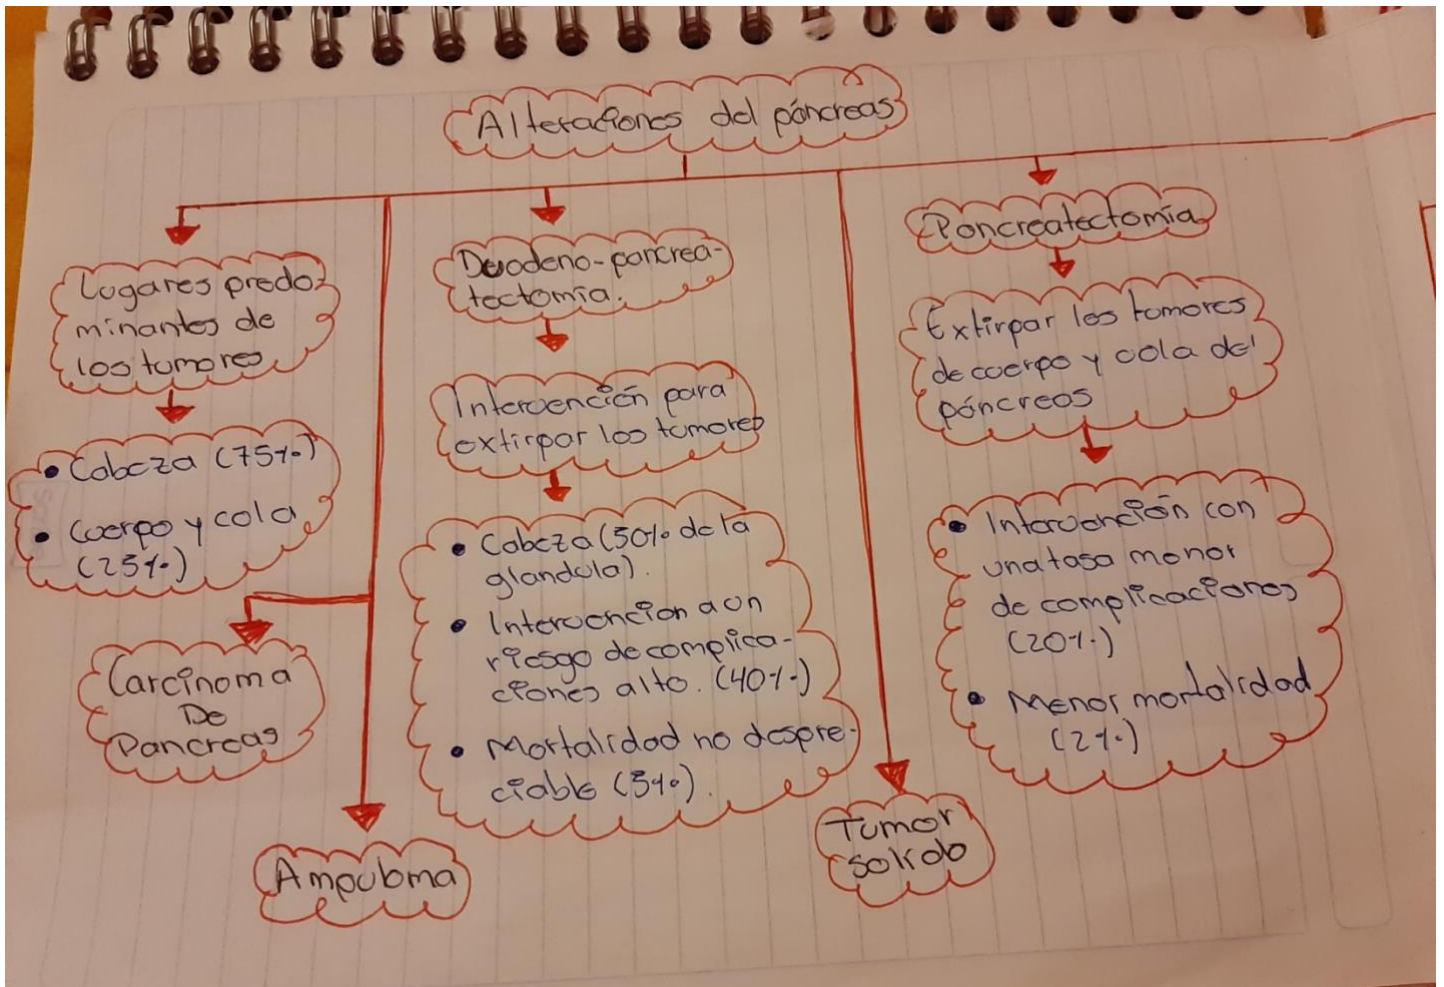 Alteraciones del páncreas
Lugares predo-
minantes de
los tumores
• Cabeza (75%)
• Cuerpo y cola
(25%)
Carcinoma
De
Pancreas
Ampuloma
Duodeno-pancrea-
tectomía.
Intervención para
extirpar los tumores
• Cabeza (50% de la
glandula).
• Intervencion a un
riesgo de complica-
ciones alto. (40%)
• Mortalidad no despre-
ciable (5%).
Tumor
solido
Pancreatectomía
Extirpar los tumores
de cuerpo y cola del
páncreas
• Intervención con
una tasa menor
de complicaciones
(20%)
• Menor mortalidad
(2%)